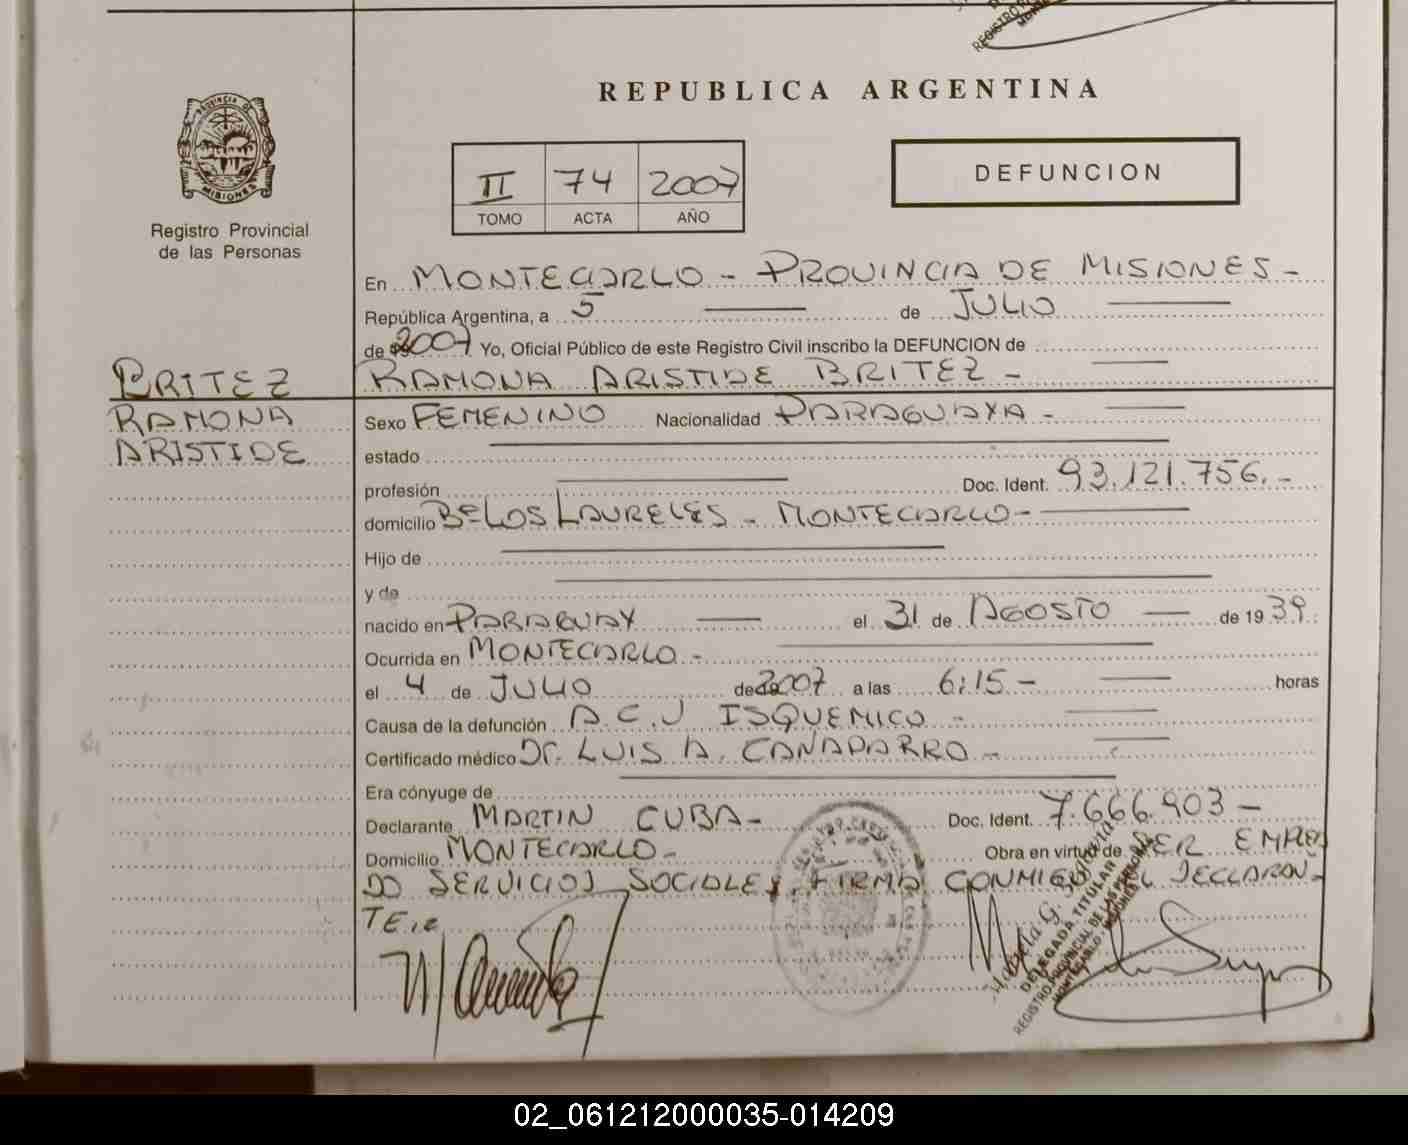 REPUBLICA ARGENTINA
PROVINCIA DE
MISIONES
Registro Provincial
de las Personas
II 74 2007
TOMO ACTA AÑO
DEFUNCION
En MONTECARLO - PROVINCIA DE MISIONES -
República Argentina, a 5 de JULIO
de 2007 Yo, Oficial Público de este Registro Civil inscribo la DEFUNCION de
BRITEZ RAMONA ARISTIDE BRITEZ -
RAMONA Sexo FEMENINO Nacionalidad PARAGUAYA -
ARISTIDE estado
profesión Doc. Ident. 93.121.756.-
domicilio Bº LOS LAURELES - MONTECARLO -
Hijo de
y de
nacido en PARAGUAY el 31 de AGOSTO de 19 39
Ocurrida en MONTECARLO -
el 4 de JULIO de 2007 a las 6:15 - horas
Causa de la defunción A.C.V ISQUEMICO -
Certificado médico Dr. LUIS A. CANAPARRO -
Era cónyuge de
Declarante MARTIN CUBA - Doc. Ident. 7.666.903 -
Domicilio MONTECARLO - Obra en virtud de SER EMPLEA
DO SERVICIOS SOCIALES, FIRMA CONMIGO EL DECLARAN-
TE
DELEGADA TITULAR
REGISTRO PROVINCIAL DE LAS PERSONAS
MONTECARLO - MISIONES
02_061212000035-014209